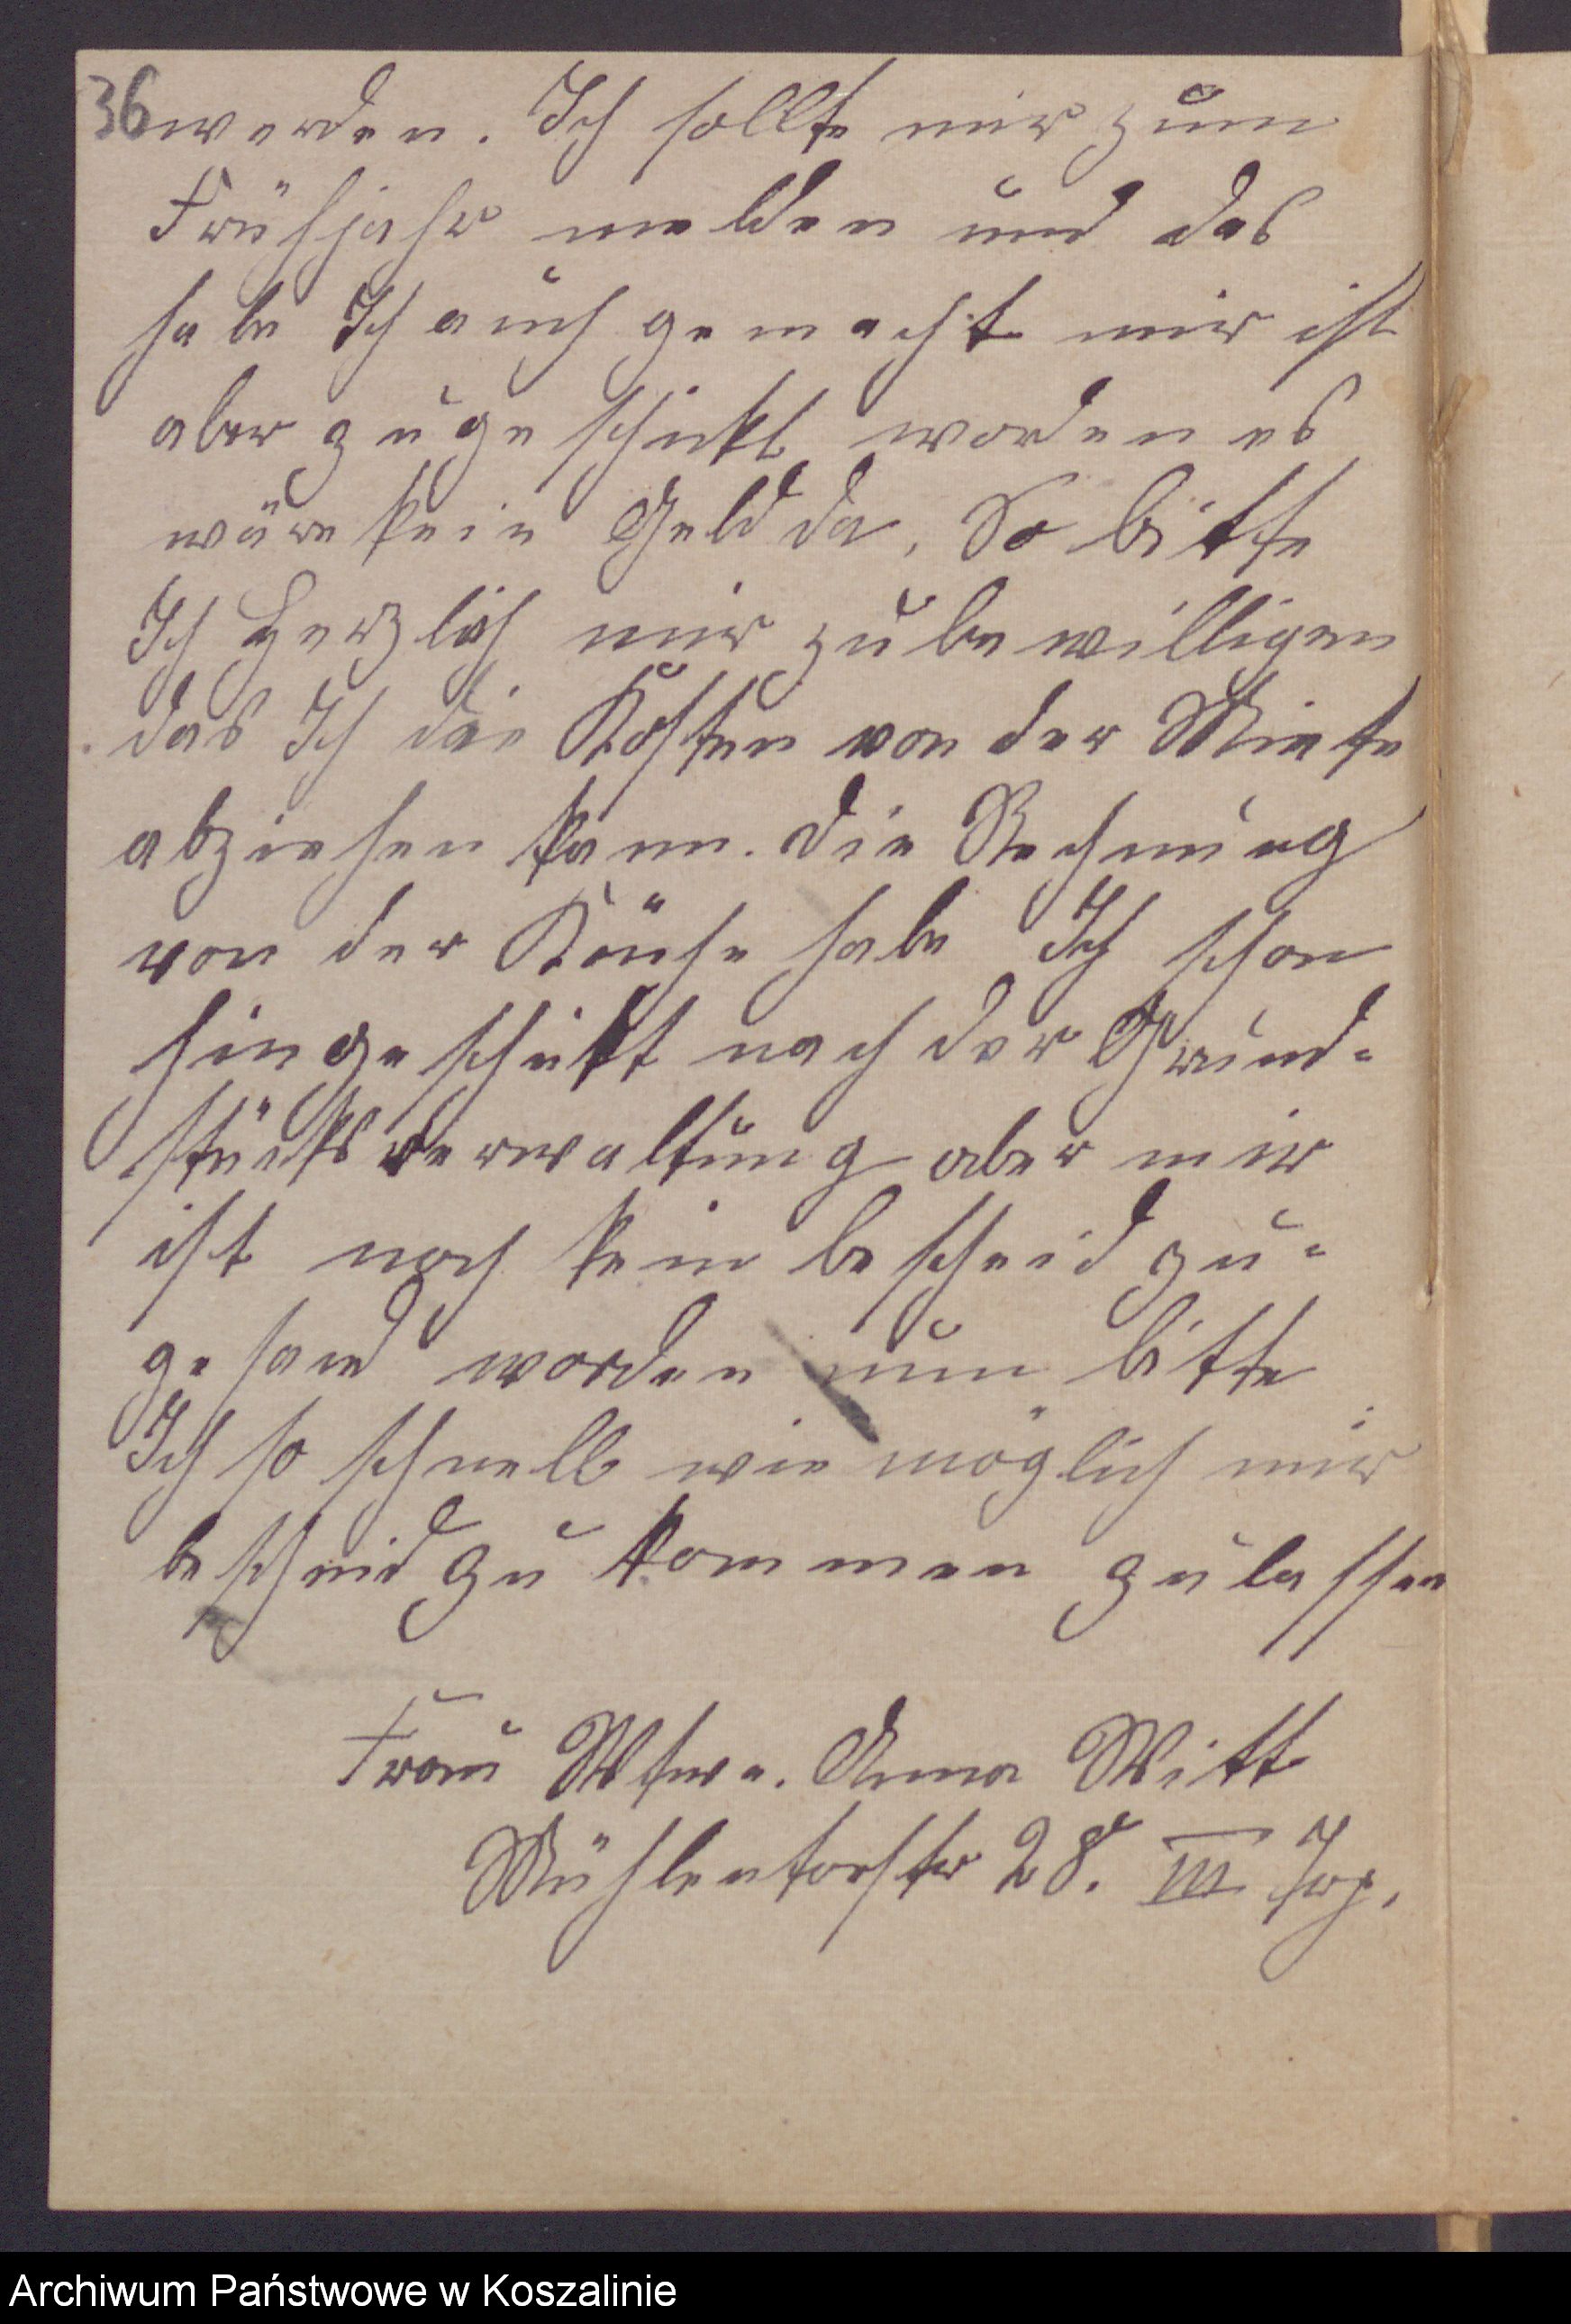 36 werden. Ich sollte mir zum
Frühjahr melden und das
habe Ich auch gemacht mir ist
aber zugeschickt worden es
wäre kein Geld da, So bitte
Ich Herzlich mir zu bewilligen
das Ich die Kosten von der Miete
abziehen kann. die Rechnung
von der habe Ich schon
hingeschikt nach der Grund-
stücksverwaltung aber mir
ist noch kein bescheid zu-
gesand worden nun bitte
Ich so schnell wie möglich mir
bescheid zu kommen zu lassen
Frau Wtwe. Anna Witt
Mühlentorstr 28. III
Archiwum Państwowe w Koszalinie